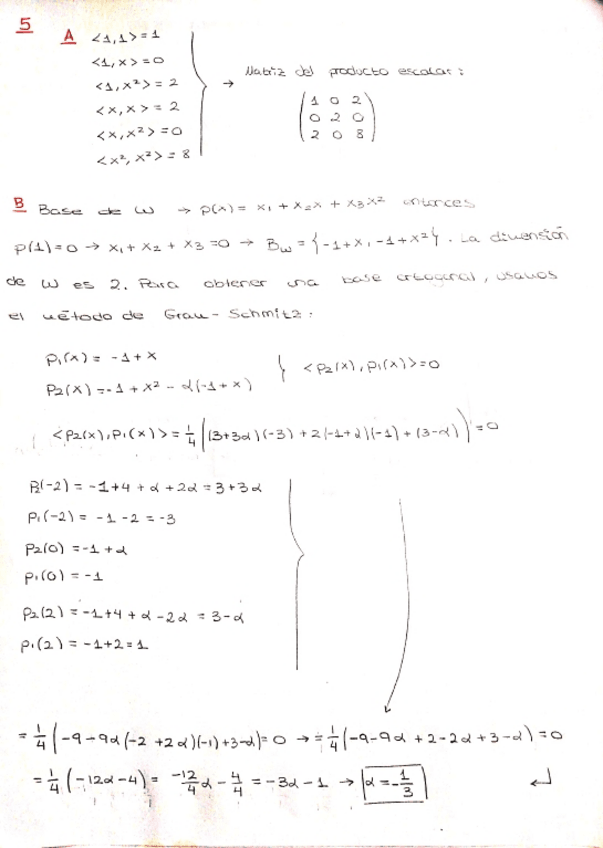 5
A <1,1> = 1
<1,x> = 0
<1,x²> = 2
<x,x> = 2
<x,x²> = 0
<x²,x²> = 8
→ Matriz del producto escalar:
1 0 2
0 2 0
2 0 8
B Base de W → p(x) = x₁ + x₂x + x₃x² entonces
p(1)=0 → x₁ + x₂ + x₃ = 0 → B_W = {-1+x, -1+x²}. La dimensión
de W es 2. Para obtener una base ortogonal, usamos
el método de Gram-Schmitz:
p₁(x) = -1+x
p₂(x) = -1 + x² - α(-1+x)
} <p₂(x), p₁(x)> = 0
<p₂(x), p₁(x)> = 1/4 ((3+3α)(-3) + 2(-1+α)(-1) + (3-α)) = 0
p₂(-2) = -1+4+α+2α = 3+3α
p₁(-2) = -1-2 = -3
p₂(0) = -1+α
p₁(0) = -1
p₂(2) = -1+4+α-2α = 3-α
p₁(2) = -1+2 = 1
= 1/4 (-9-9α(-2+2α)(-1)+3-α) = 0 → = 1/4 (-9-9α+2-2α+3-α) = 0
= 1/4 (-12α-4) = -12/4 α - 4/4 = -3α-1 → α = -1/3